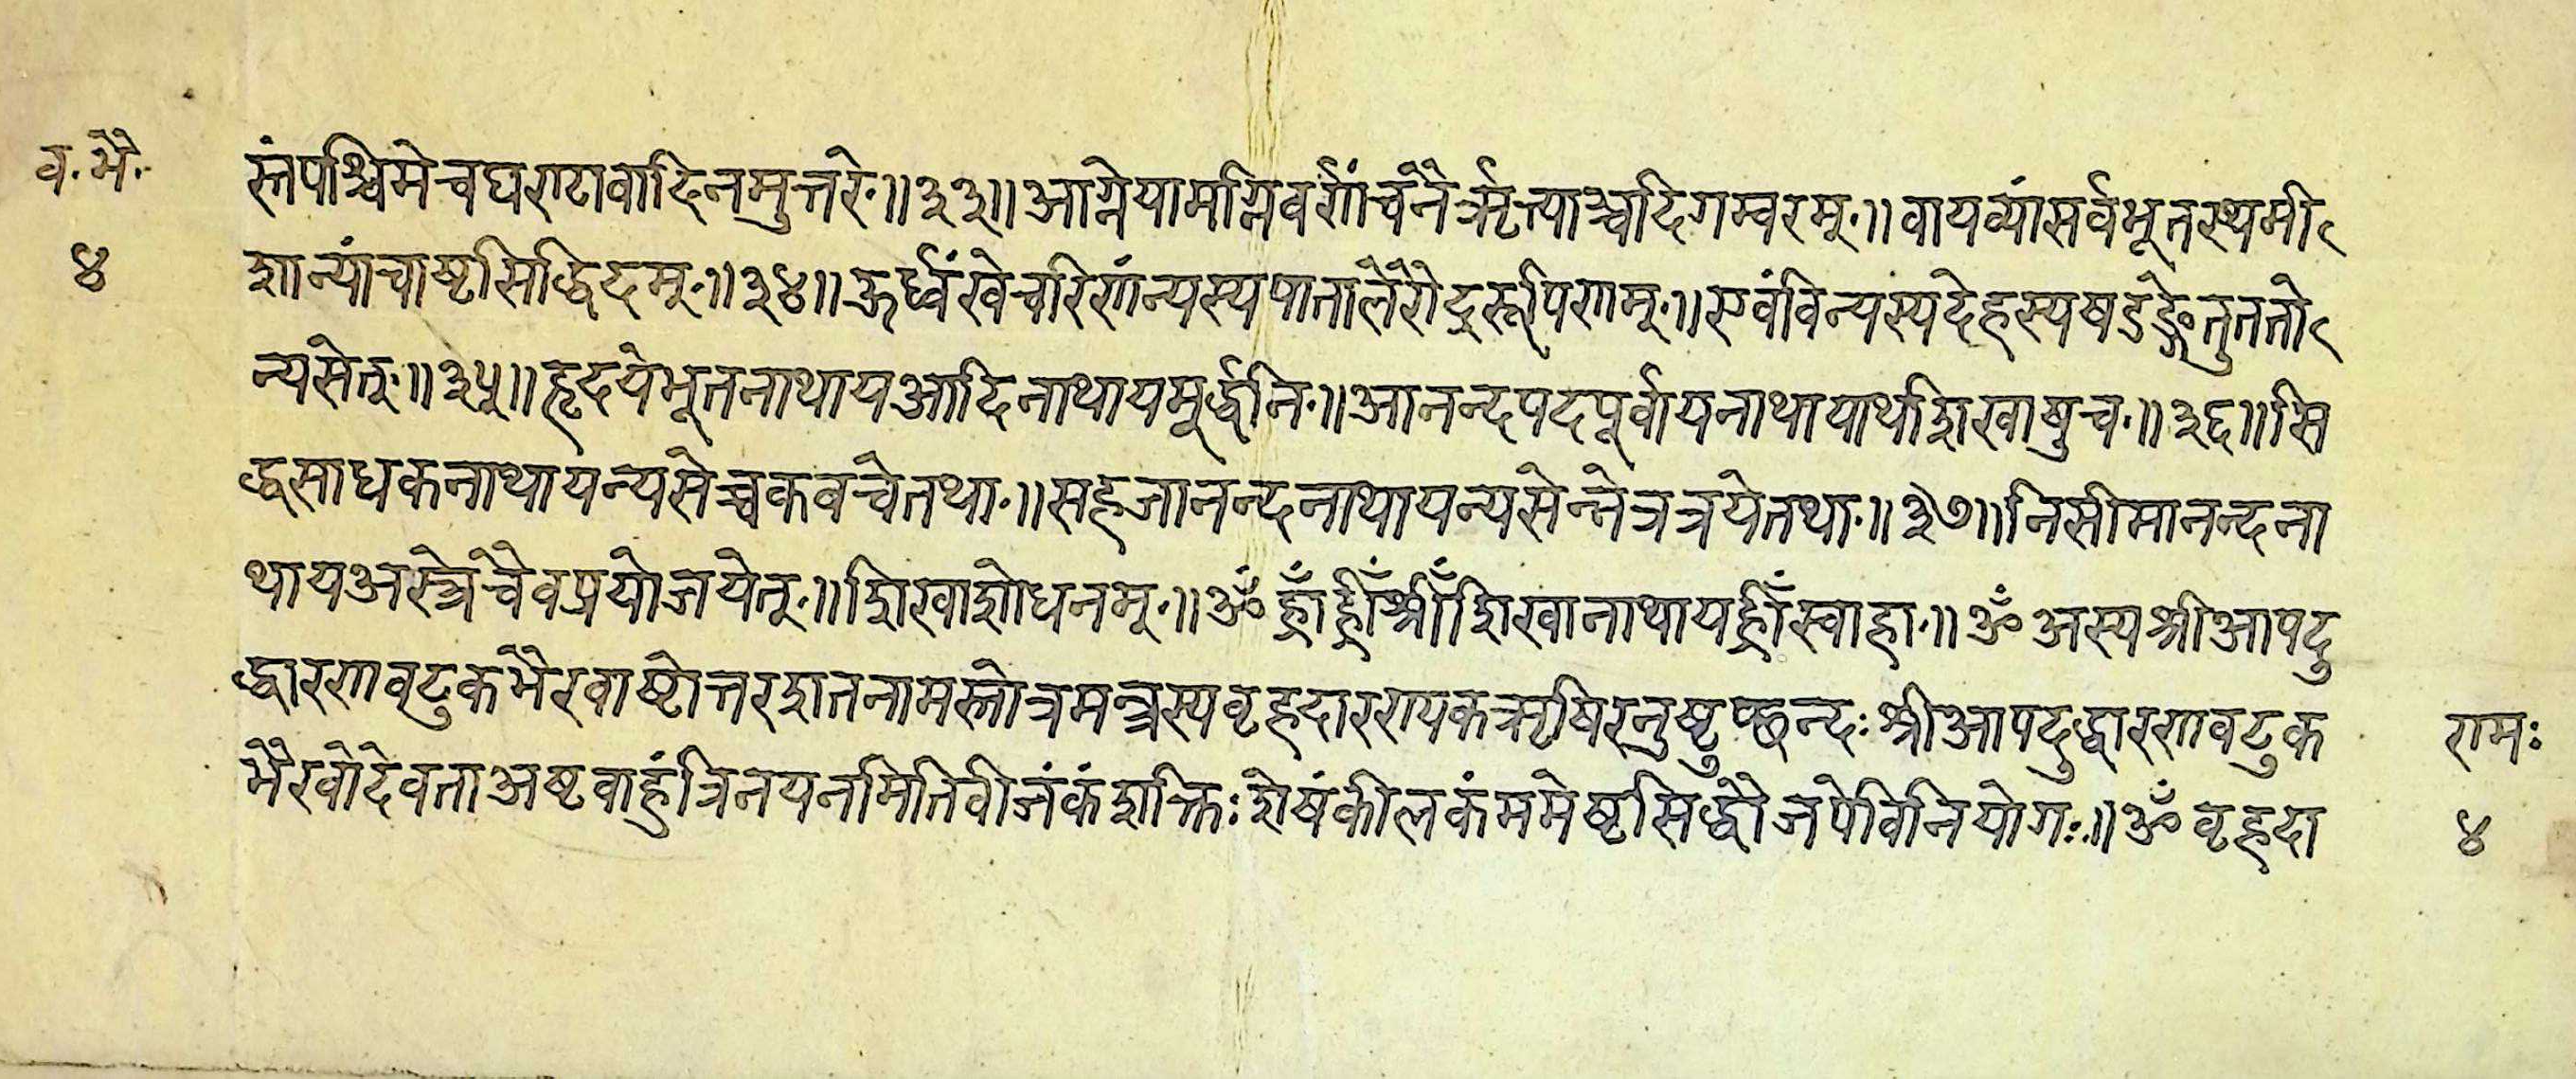 व. भै.
४
स्तंपश्चिमेचघण्टावादिनमुत्तरे॥३३॥आग्नेयामग्निवर्णंचनैरृत्याञ्चदिगम्बरम्॥वायव्यांसर्वभूतस्थमी
शान्यांचाष्टसिद्धिदम्॥३४॥ऊर्ध्वंखेचरिणंन्यस्यपातालेरौद्ररूपिणम्॥एवंविन्यस्यदेहस्यषडङ्गेतुततो
न्यसेत्॥३५॥हृदयेभूतनाथायआदिनाथायमूर्द्धनि॥आनन्दपदपूर्वायनाथायाथशिखाषुच॥३६॥सि
द्धसाधकनाथायन्यसेच्चकवचेतथा॥सहजानन्दनाथायन्यसेन्नेत्रत्रयेतथा॥३७॥निसीमानन्दना
थायअस्त्रेचैवप्रयोजयेत्॥शिखाशोधनम्॥ॐह्राँह्रीँश्रीँशिखानाथायह्रीँस्वाहा॥ॐअस्यश्रीआपदु
द्धारणवटुकभैरवाष्टोत्तरशतनामस्तोत्रमन्त्रस्यवृहदारण्यकऋषिरनुष्टुप्छन्दःश्रीआपदुद्धारणवटुक
भैरवोदेवताअष्टवाहुंत्रिनयनमितिवीजंकंशक्तिःशेषंकीलकंममेष्टसिद्धौजपेविनियोगः॥ॐवृहदा
रामः
४